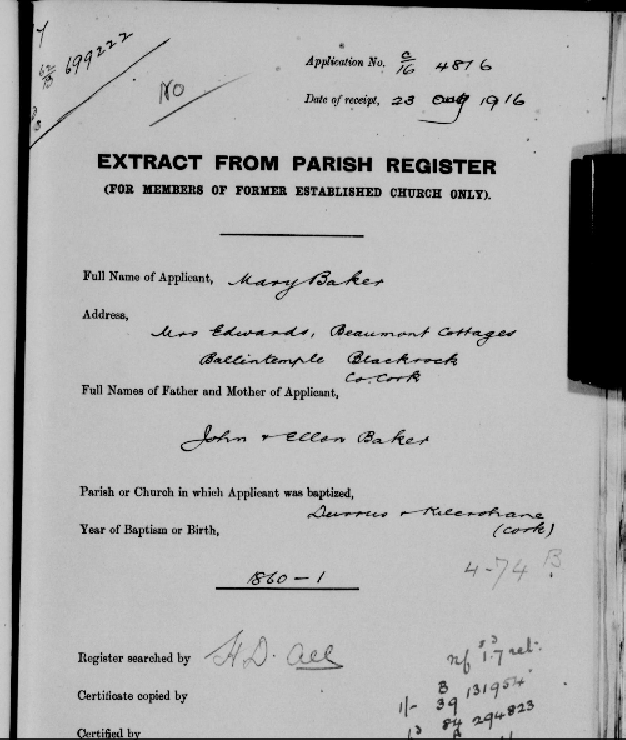 699222
No
Application No. C/16 4876
Date of receipt, 23 Aug 1916
EXTRACT FROM PARISH REGISTER
(FOR MEMBERS OF FORMER ESTABLISHED CHURCH ONLY).
Full Name of Applicant, Mary Baker
Address,
Mrs Edwards, Beaumont Cottages
Ballintemple Blackrock
Co. Cork
Full Names of Father and Mother of Applicant,
John & Ellen Baker
Parish or Church in which Applicant was baptized,
Durrus & Kilcrohane
Year of Baptism or Birth,
(Cork)
1860-1
4-74 B
Register searched by H.D.
nf 1.7 ret.
Certificate copied by
3
1/- 39 131954
84 294823
Certified by